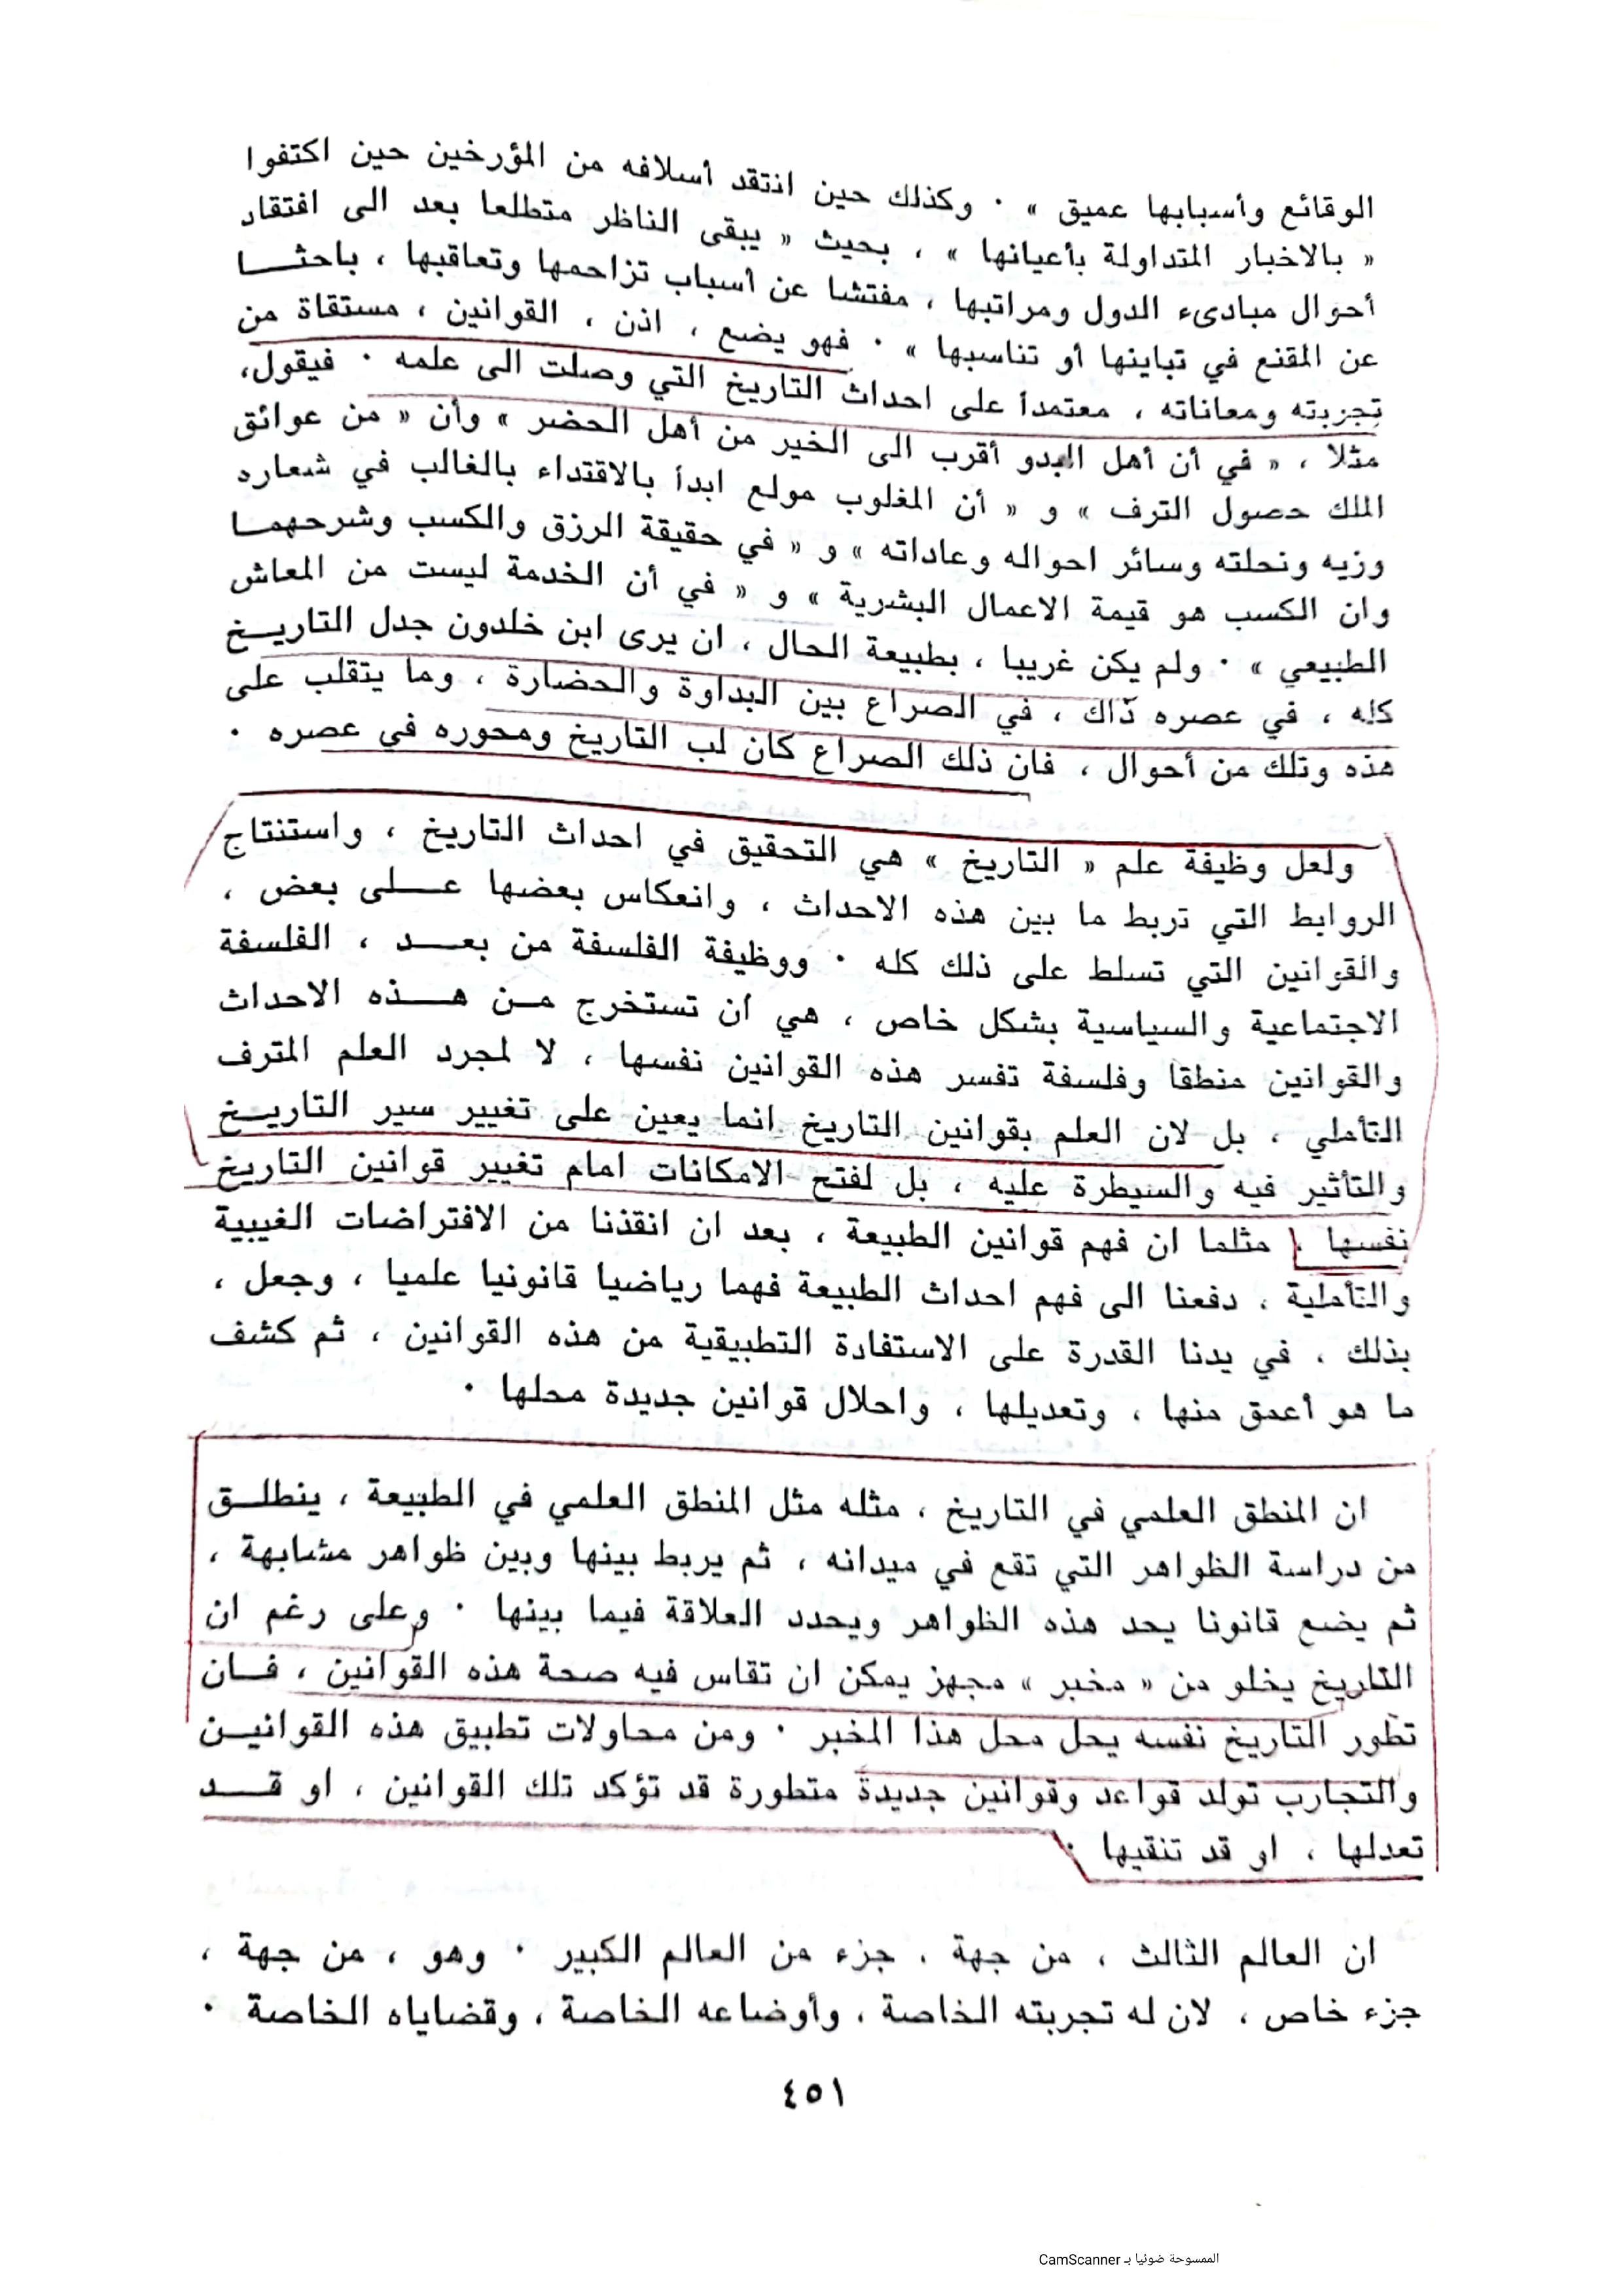 الوقائع وأسبابها عميق » . وكذلك حين انتقد أسلافه من المؤرخين حين اكتفوا
« بالاخبار المتداولة بأعيانها » ، بحيث « يبقى الناظر متطلعا بعد الى افتقاد
أحوال مبادىء الدول ومراتبها ، مفتشا عن أسباب تزاحمها وتعاقبها ، باحثا
عن المقنع في تباينها أو تناسبها » . فهو يضع ، اذن ، القوانين ، مستقاة من
تجربته ومعاناته ، معتمدأ على احداث التاريخ التي وصلت الى علمه . فيقول،
مثلا ، « في أن أهل البدو أقرب الى الخير من أهل الحضر » وأن « من عوائق
الملك حصول الترف » و « أن المغلوب مولع ابدأ بالاقتداء بالغالب في شعاره
وزيه ونحلته وسائر احواله وعاداته » و « في حقيقة الرزق والكسب وشرحهما
وان الكسب هو قيمة الاعمال البشرية » و « في أن الخدمة ليست من المعاش
الطبيعي » . ولم يكن غريبا ، بطبيعة الحال ، ان يرى ابن خلدون جدل التاريخ
كله ، في عصره ذاك ، في الصراع بين البداوة والحضارة ، وما يتقلب على
هذه وتلك من أحوال ، فان ذلك الصراع كان لب التاريخ ومحوره في عصره .
ولعل وظيفة علم « التاريخ » هي التحقيق في احداث التاريخ ، واستنتاج
الروابط التي تربط ما بين هذه الاحداث ، وانعكاس بعضها على بعض ،
والقوانين التي تسلط على ذلك كله . ووظيفة الفلسفة من بعد ، الفلسفة
الاجتماعية والسياسية بشكل خاص ، هي ان تستخرج من هذه الاحداث
والقوانين منطقا وفلسفة تفسر هذه القوانين نفسها ، لا لمجرد العلم المترف
التأملي ، بل لان العلم بقوانين التاريخ انما يعين على تغيير سير التاريخ
والتأثير فيه والسيطرة عليه ، بل لفتح الامكانات امام تغيير قوانين التاريخ
نفسها ، مثلما ان فهم قوانين الطبيعة ، بعد ان انقذنا من الافتراضات الغيبية
والتأملية ، دفعنا الى فهم احداث الطبيعة فهما رياضيا قانونيا علميا ، وجعل ،
بذلك ، في يدنا القدرة على الاستفادة التطبيقية من هذه القوانين ، ثم كشف
ما هو أعمق منها ، وتعديلها ، واحلال قوانين جديدة محلها .
ان المنطق العلمي في التاريخ ، مثله مثل المنطق العلمي في الطبيعة ، ينطلق
من دراسة الظواهر التي تقع في ميدانه ، ثم يربط بينها وبين ظواهر مشابهة ،
ثم يضع قانونا يحد هذه الظواهر ويحدد العلاقة فيما بينها . وعلى رغم ان
التاريخ يخلو من « مخبر » مجهز يمكن ان تقاس فيه صحة هذه القوانين ، فان
تطور التاريخ نفسه يحل محل هذا المخبر . ومن محاولات تطبيق هذه القوانين
والتجارب تولد قواعد وقوانين جديدة متطورة قد تؤكد تلك القوانين ، او قد
تعدلها ، او قد تنقيها .
ان العالم الثالث ، من جهة ، جزء من العالم الكبير . وهو ، من جهة ،
جزء خاص ، لان له تجربته الخاصة ، وأوضاعه الخاصة ، وقضاياه الخاصة .
٤٥١
الممسوحة ضوئيا بـ CamScanner